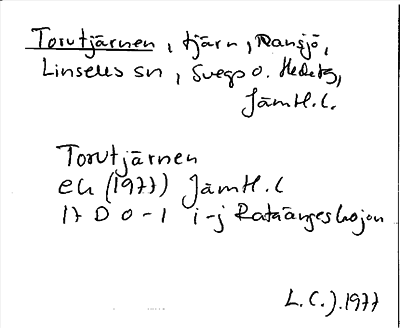 Torutjärnen, tjärn, Ransjö,
Linsells sn, Svegs o. Hede tg,
Jämtl. l.
Torutjärnen
ek (1977) Jämtl. l
17 D 0-1 i-j Rataängeskojan
L.C.J. 1977